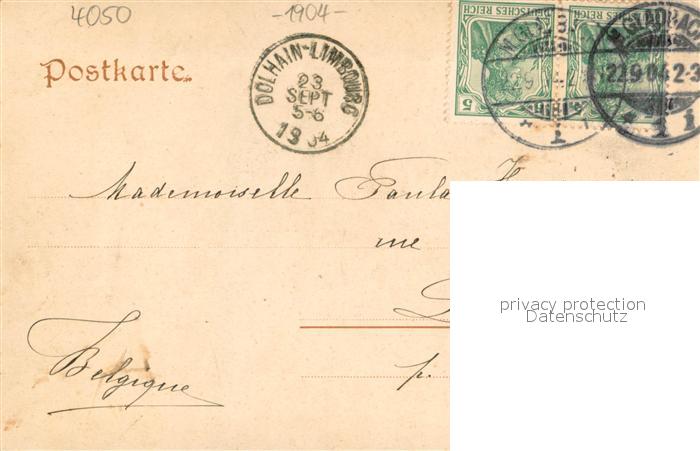 4050
-1904-
Postkarte.
DOLHAIN-LIMBOURG
23
SEPT
5-6
1904
DEUTSCHES REICH
5
DEUTSCHES REICH
GLADBACH
22.9.04.2-3
1 i
Mademoiselle Paula
rue
privacy protection
Datenschutz
p.
Belgique